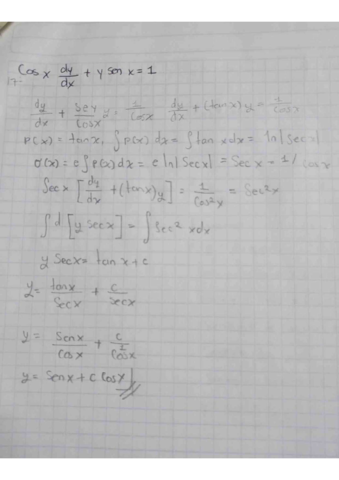 Cos x dy/dx + y sen x = 1
dy/dx + Sen/Cosx y = 1/Cosx dy/dx + (tanx) y = 1/Cosx
P(x) = tanx, ∫P(x) dx = ∫tan x dx = ln|Secx|
e∫P(x) dx = e ln|Secx| = Secx = 1/cosx
Secx [dy/dx + (tanx)y] = 1/Cos²x = Sec²x
∫d[y secx] = ∫Sec² xdx
y Secx = tan x + c
y = tanx/Secx + c/secx
y = Senx/Cosx + c/Cosx
y = Senx + c Cosx